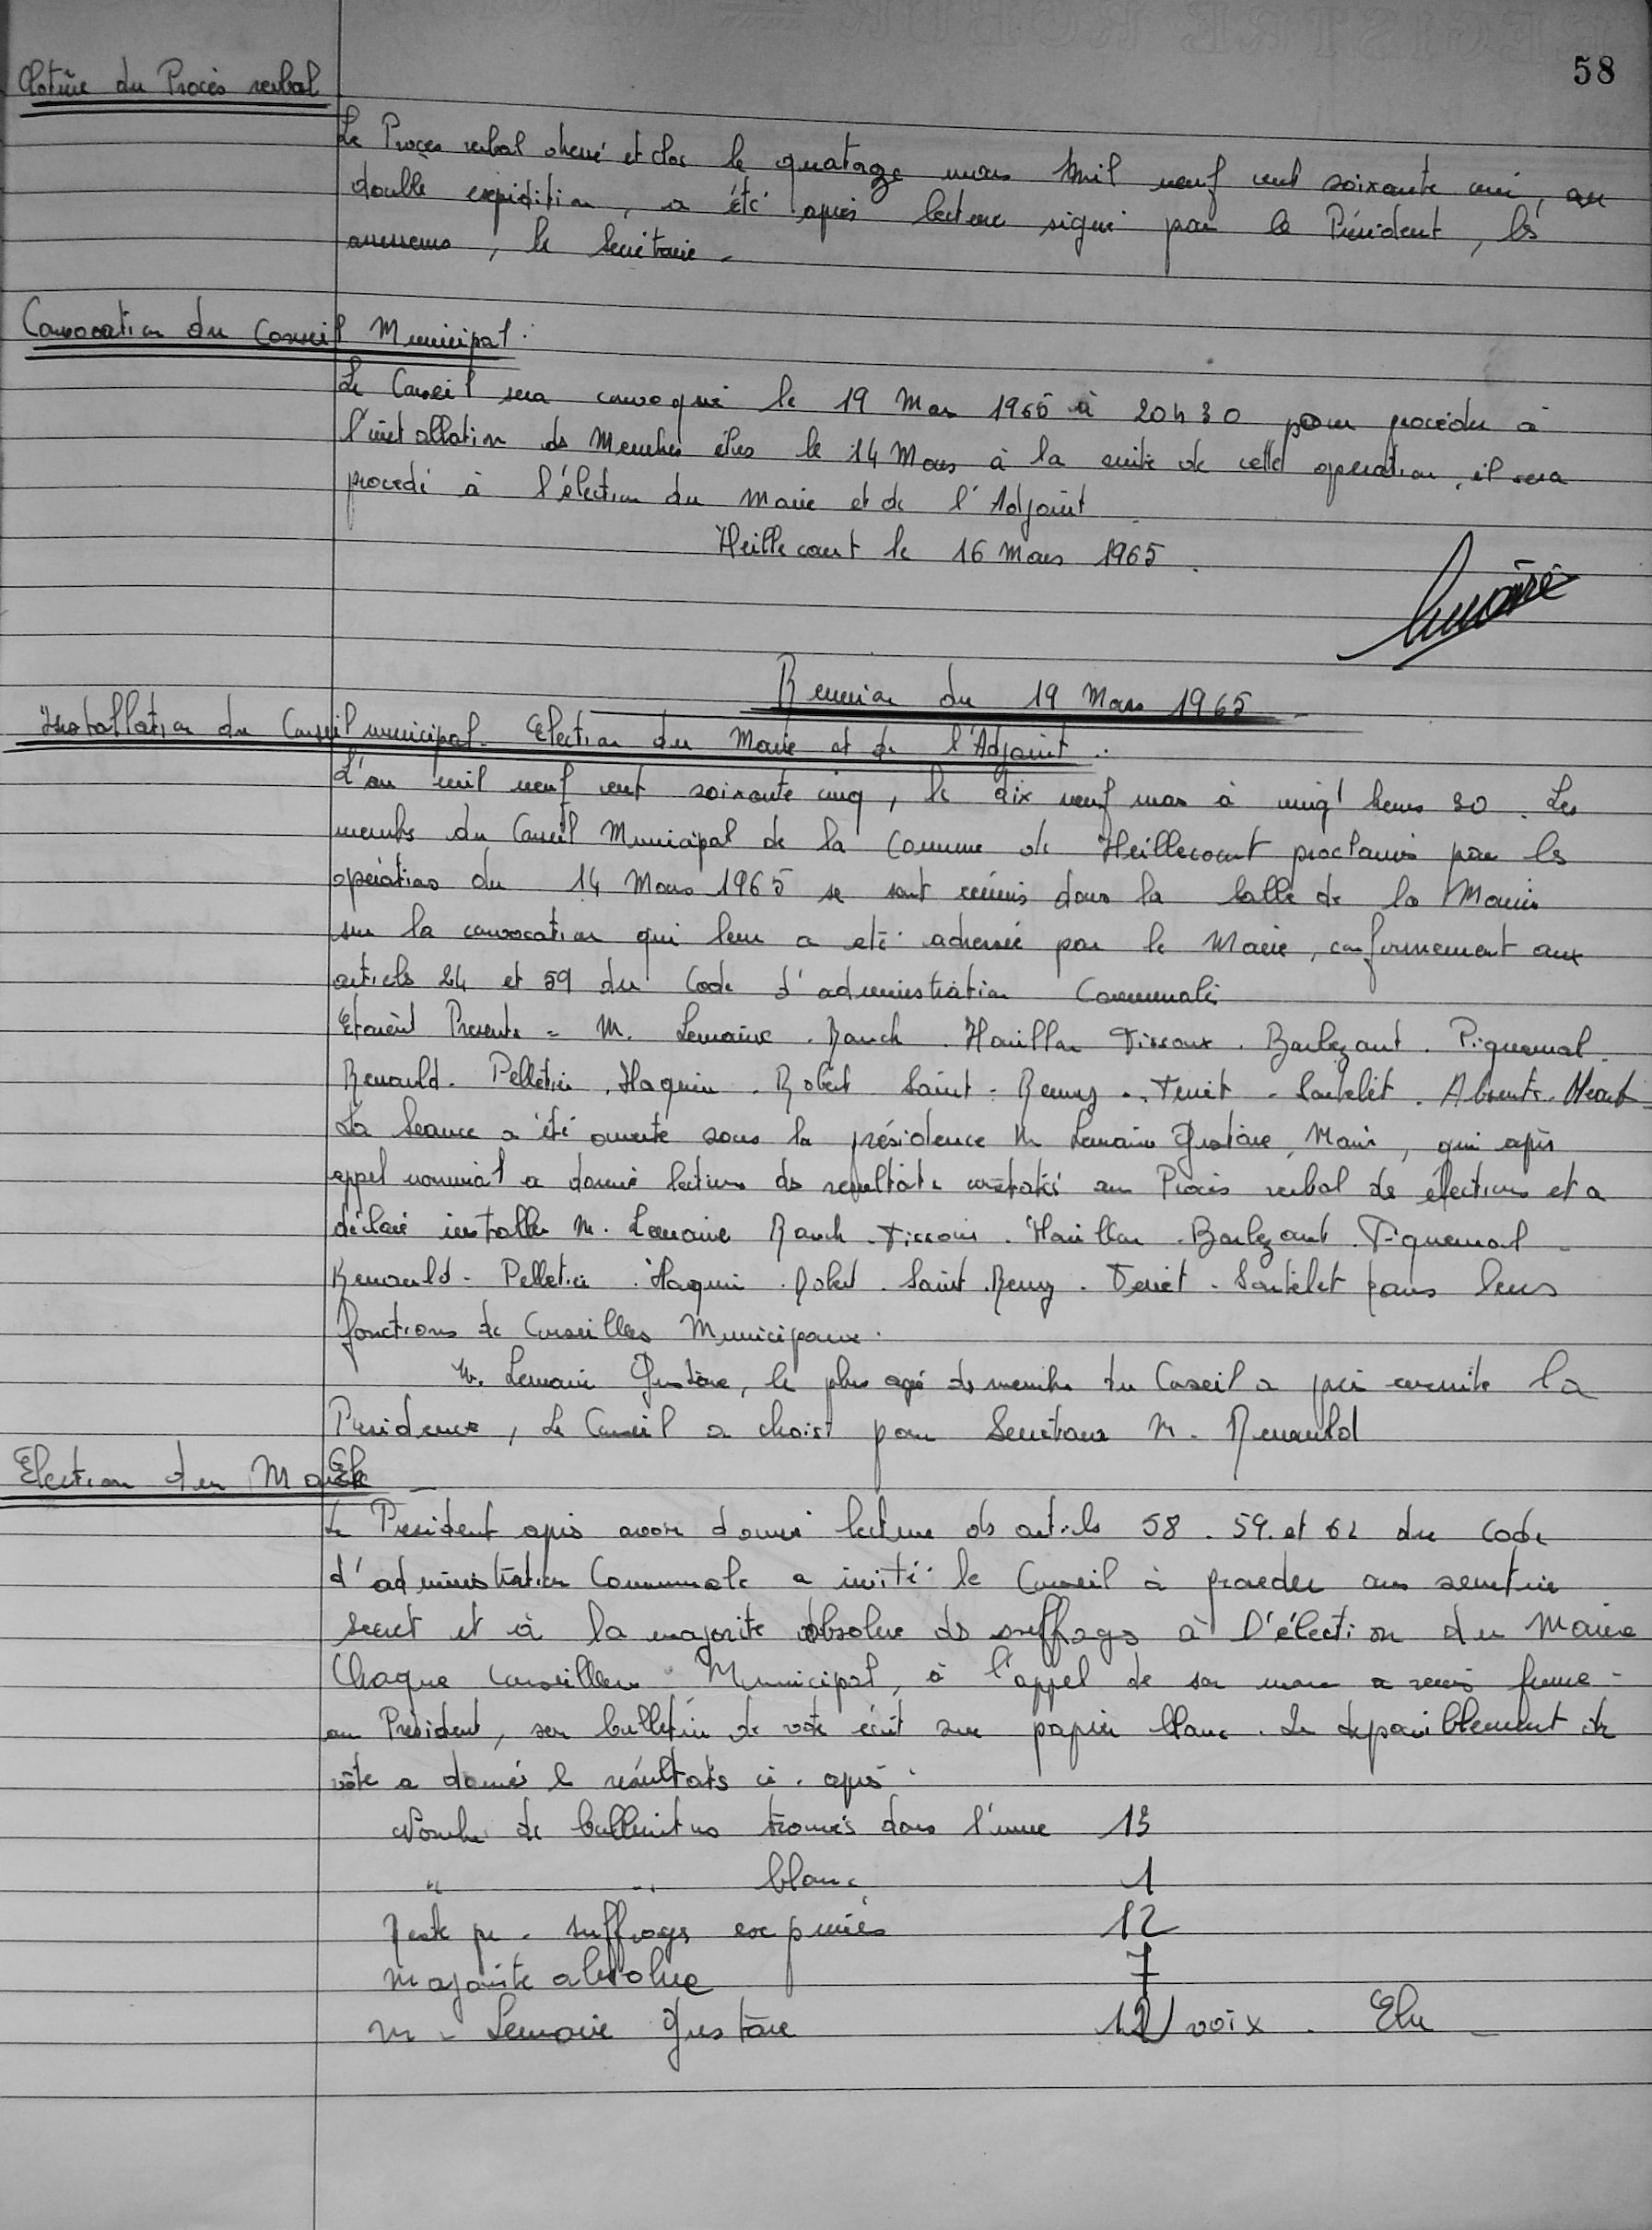 58
Clôture du Procès verbal
Le Procès verbal dressé et clos le quatorze mars mil neuf cent soixante cinq, en
double expédition, a été après lecture signé par le Président, les
assesseurs, le Secrétaire.
Convocation du Conseil Municipal.
Le Conseil sera convoqué le 19 Mars 1965 à 20h30 pour procéder à
l'installation des Membres élus le 14 Mars à la suite de cette opération, il sera
procédé à l'élection du Maire et de l'Adjoint
Heillecourt le 16 Mars 1965.
Lemoine
Reunion du 19 Mars 1965
Installation du Conseil municipal. Election du Maire et de l'Adjoint.
L'an mil neuf cent soixante cinq, le dix neuf mars à vingt heures 30. Les
membres du Conseil Municipal de la Commune de Heillecourt proclamés par les
opérations du 14 Mars 1965 se sont réunis dans la salle de la Mairie
sur la convocation qui leur a été adressée par le Maire, conformement aux
articles 24 et 59 du Code d'administration Communale
Etaient Presents = M. Lemoine. Rauch. Houillon Tissoux. Barbezant. Piquemal.
Renauld. Pelletier. Haquin. Robert Saint-Remy. Tenet. Sautelet. Absents.
La Seance a été ouverte sous la présidence M Lemoine Gustave, Maire, qui après
appel nominal a donné lecture des resultats constatés au Procès verbal des élections et a
déclaré installer M. Lemoine Rauch. Tissoux. Houillon. Barbezant. Piquemal.
Renauld. Pelletier. Haquin. Robert. Saint. Remy. Tenet. Sautelet dans leurs
fonctions de Conseillers Municipaux.
M. Lemoine Gustave, le plus agé des membres du Conseil a pris ensuite la
Presidence, Le Conseil a choisi pour Secrétaire M. Renauld
Election du Maire
Le President après avoir donné lecture des articles 58. 59. et 62 du Code
d'administration Communale a invité le Conseil à proceder au scrutin
secret et à la majorite absolue des suffrages à l'élection du Maire
Chaque Conseillers Municipal, à l'appel de son nom a remis fermé
au President, son bulletin de vote écrit sur papier blanc. Le depouiblement de
vote a donnés les résultats ci. après.
Nombre de bulletins trouvés dans l'urne 13
" " blanc 1
Reste pr. suffrages exprimés 12
Majorité absolue 7
M. Lemoine Gustave 12 voix. Elu